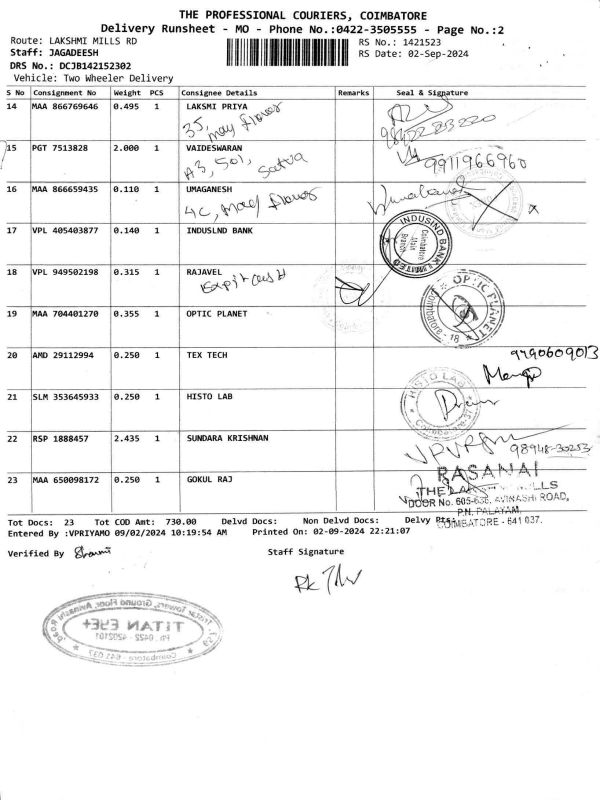 THE PROFESSIONAL COURIERS, COIMBATORE
Delivery Runsheet - MO - Phone No.:0422-3505555 - Page No.:2
Route: LAKSHMI MILLS RD
RS No.: 1421523
Staff: JAGADEESH
RS Date: 02-Sep-2024
DRS No.: DCJB142152302
Vehicle: Two Wheeler Delivery
S No Consignment No Weight PCS Consignee Details Remarks Seal & Signature
14 MAA 866769646 0.495 1 LAKSMI PRIYA
35, may flower
15 PGT 7513828 2.000 1 VAIDESWARAN
A3, 501,
9911966960
16 MAA 866659435 0.110 1 UMAGANESH
4C, flower
17 VPL 405403877 0.140 1 INDUSLND BANK
INDUSIND BANK LIMITED
Coimbatore
Main
Branch
18 VPL 949502198 0.315 1 RAJAVEL
19 MAA 704401270 0.355 1 OPTIC PLANET
* OPTIC PLANET * Coimbatore - 18
20 AMD 29112994 0.250 1 TEX TECH
9790609013
21 SLM 353645933 0.250 1 HISTO LAB
HISTO LAB
Coimbatore-37
22 RSP 1888457 2.435 1 SUNDARA KRISHNAN
98948-30253
23 MAA 650098172 0.250 1 GOKUL RAJ
RASANAI
THE LAKSHMI MILLS
DOOR No. 605-636, AVINASHI ROAD,
P.N. PALAYAM,
COIMBATORE - 641 037.
Tot Docs: 23 Tot COD Amt: 730.00 Delvd Docs: Non Delvd Docs: Delvy Pts:
Entered By :VPRIYAMO 09/02/2024 10:19:54 AM Printed On: 02-09-2024 22:21:07
Verified By
Staff Signature
Tristar Towers, Ground Floor, Avinashi Road
TITAN EYE+
PH: 0422 - 4202101
Coimbatore - 641 037